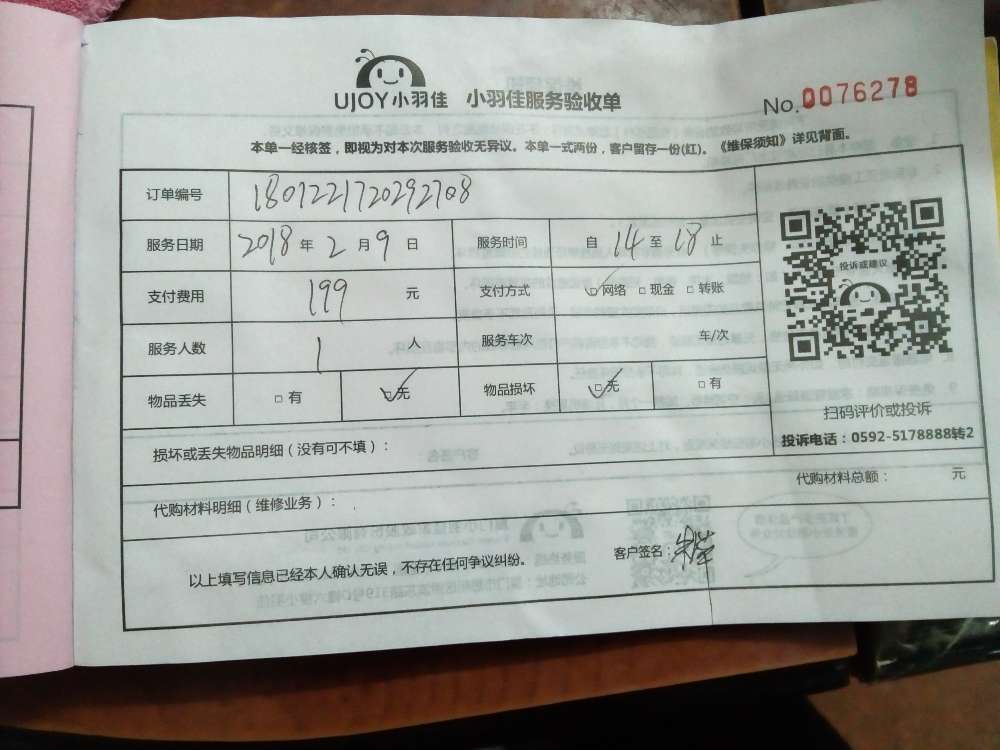 UJOY小羽佳 小羽佳服务验收单
No.0076278
本单一经核签，即视为对本次服务验收无异议。本单一式两份，客户留存一份(红)。《维保须知》详见背面。
订单编号 1801221720292708
服务日期 2018 年 2 月 9 日 服务时间 自 14 至 18 止
投诉或建议
支付费用 199 元 支付方式 ☑网络 □现金 □转账
服务人数 1 人 服务车次 车/次
物品丢失 □有 ☑无 物品损坏 ☑无 □有
扫码评价或投诉
投诉电话：0592-5178888转2
损坏或丢失物品明细（没有可不填）：
代购材料明细（维修业务）：
代购材料总额： 元
以上填写信息已经本人确认无误，不存在任何争议纠纷。
客户签名：